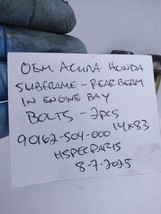 OEM ACURA HONDA
SUBFRAME - REAR BEAM
IN ENGINE BAY
BOLTS - 2PCS
14x83
90162-S04-000
HSPECPARTS
8-7-2025